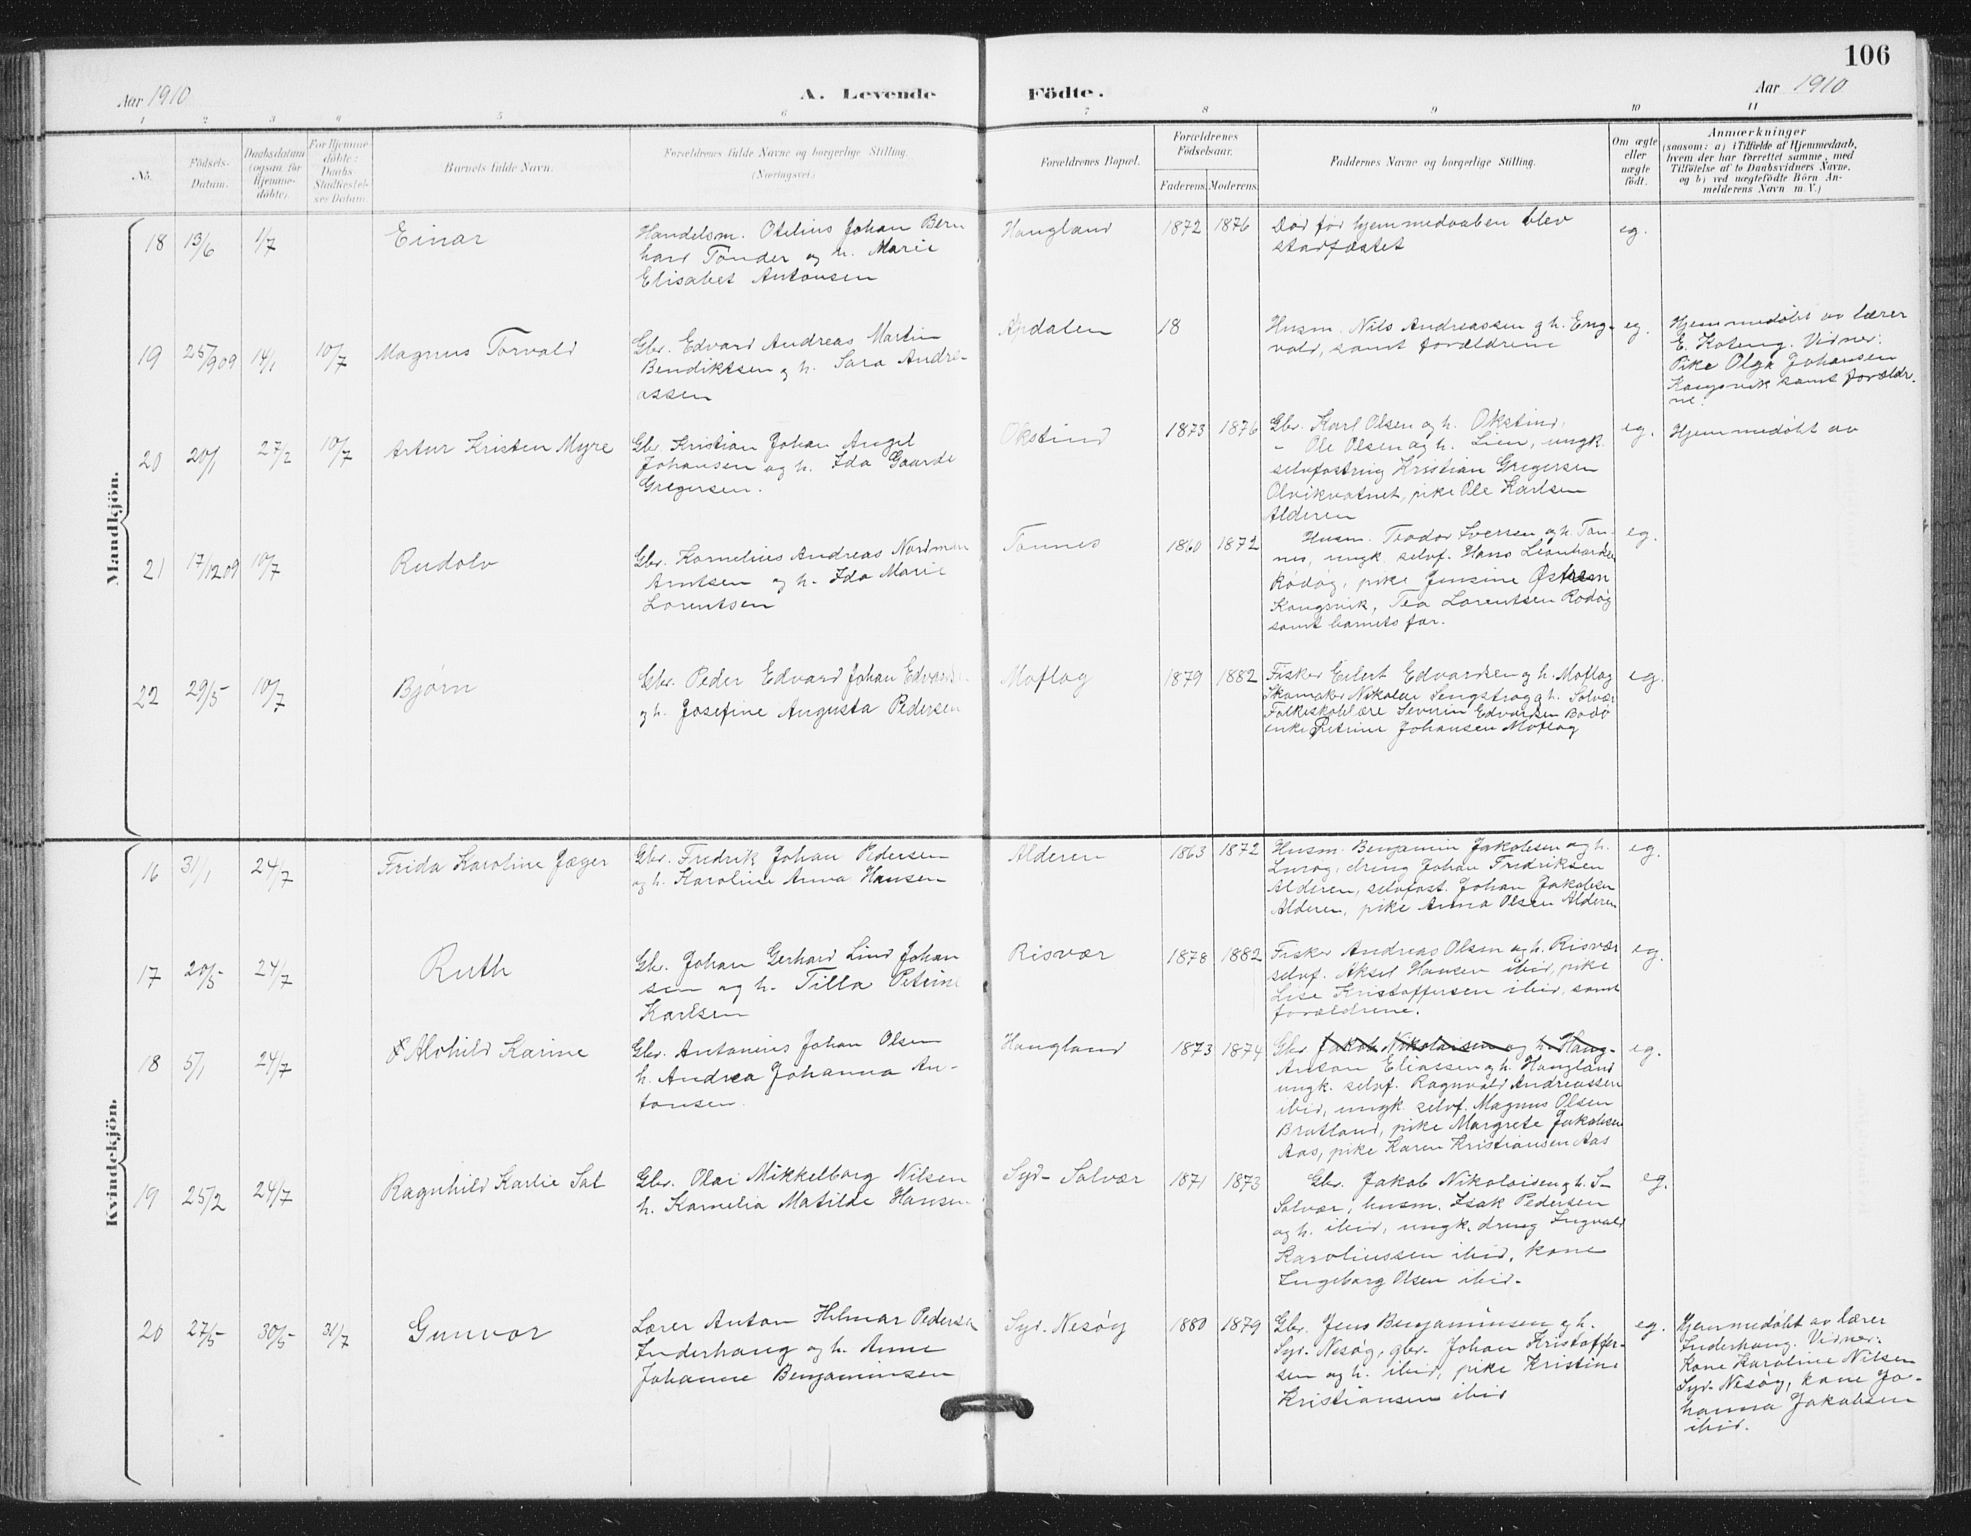 106
Aar 1910
A. Levende
Födte.
Aar 1910
1 2 3 4 5 6 7 8 9 10 11
No.
Födsels-
Datum.
Daabsdatum
(ogsaa for
Hjemme-
döbte).
For Hjemme-
döbte:
Daabs-
Stadfæstel-
ses Datum.
Barnets fulde Navn.
Forældrenes fulde Navne og borgerlige Stilling.
(Næringsvei.)
Forældrenes Bopæl.
Forældrenes
Födselsaar.
Faderens. Moderens.
Faddernes Navne og borgerlige Stilling.
Om ægte
eller
uægte
födt.
Anmærkninger
(saasom: a) i Tilfælde af Hjemmedaab,
hvem der har forrettet samme, med
Tilföielse af to Daabsvidners Navne,
og b) ved uægtefödte Börn An-
melderens Navn m. V.)
Mandkjön.
18 13/6 1/7
Einar
Handelsm. Otelius Johan Bern
hard Tønder og h. Marie
Elisabet Antonsen
Haugland
1872 1876
Død før hjemmedaaben blev
stadfæstet
eg.
19 25/9 09 14/1 10/7
Magnus Torvald
Gbr. Edvard Andreas Martin
Bendiktsen og h. Sara Andre-
assen
Apdalen
18
Husm. Nils Andreassen og h. Eng-
vald, samt forældrene
eg.
Hjemmedøbt av lærer
E. Koteng. Vidner:
Pike Olga Johansen
Kongsvik samt forældr.
ne.
20 20/1 27/2 10/7
Artur Kristen Myre
Gbr. Kristian Johan Angel
Johansen og h. Ida Gaarde
Gregersen.
Okstind
1873 1876
Gbr. Karl Olsen og h. Okstind,
- Ole Olsen og h. Lien, ungk.
selvfostring Kristian Gregersen
Olvikvatnet, pike Ole Karlsen
Alderen
eg.
Hjemmedøbt av
21 17/12 09 10/7
Rudolv
Gbr. Kornelius Andreas Nordman
Arntsen og h. Ida Marie
Lorentsen
Tonnes
1860 1872
Husm. Teodor Iversen og h. Ton-
nes, ungk. selvf. Hans Leonhardsen
Rødøg, pike Jensine Østresen
Kongsvik, Tea Lorentsen Rodøg
samt barnets far.
eg.
22 29/5 10/7
Bjørn
Gbr. Peder Edvard Johan Edvards
og h. Josefine Augusta Pedersen
Moflag
1879 1882
Fisker Eilert Edvardsen og h. Moflag
Skomaker Nikolai Lengstrog g h. Solvær
Folkeskolelære Severin Edvardsen Bodø
enke Petrine Johansen Moflag
eg.
Kvindekjön.
16 31/1 24/7
Frida Karoline Jæger
Gbr. Fredrik Johan Pedersen
og h. Karoline Anna Hansen
Alderen
1863 1872
Husm. Benjamin Jakobsen og h.
Lurøg, dreng Johan Fredriksen
Alderen, selvfost. Johan Jakobsen
Alderen, pike Anna Olsen Alderen
eg.
17 20/5 24/7
Ruth
Gbr. Johan Gerhard Lind Johan
sen og h. Tilla Petrine
Karlsen
Risvær
1878 1882
Fisker Andreas Olsen og h. Risvær
selvf. Aksel Hansen ibid, pike
Lise Kristoffersen ibid, samt
forældrene.
eg.
18 5/1 24/7
Alvhild Karine
Gbr. Antonius Johan Olsen
h. Andrea Johanna An-
tonsen.
Haugland
1873 1874
Gbr. Jakob Nikolaisen og h. Haug-
Anton Eliassen g h. Haugland
ungk. selvf. Ragnvald Andreassen
ibid, ungk. selvf. Magnus Olsen
Bratland, pike Margrete Jakobsen
Aas, pike Karen Kristiansen Aas
eg.
19 25/2 24/7
Ragnhild Karlie Sal
Gbr. Olai Mikkelborg Nilsen
h. Kornelia Matilde Hansen
Syd-Solvær
1871 1873
Gbr. Jakob Nikolaisen g h. S-
Solvær, husm. Isak Pedersen
og h. ibid, ungk. dreng Ingvald
Karoliussen ibid, kone
Ingeborg Olsen ibid.
eg.
20 27/5 30/5 31/7
Gunvor
Lærer Anton Hilmar Pedersen
Inderhaug og h. Anne
Johanne Benjaminsen
Syd. Nesøy
1880 1879
Gbr. Jens Benjaminsen g h.
Syd. Nesøg, gbr. Johan Kristoffer-
sen og h. ibid, pike Kristine
Kristiansen ibid
eg.
Hjemmedøbt av lærer
Inderhaug. Vidner:
Kone Karoline Nilsen
Syd-Nesøg, kone Jo-
hanna Jakobsen
ibid.